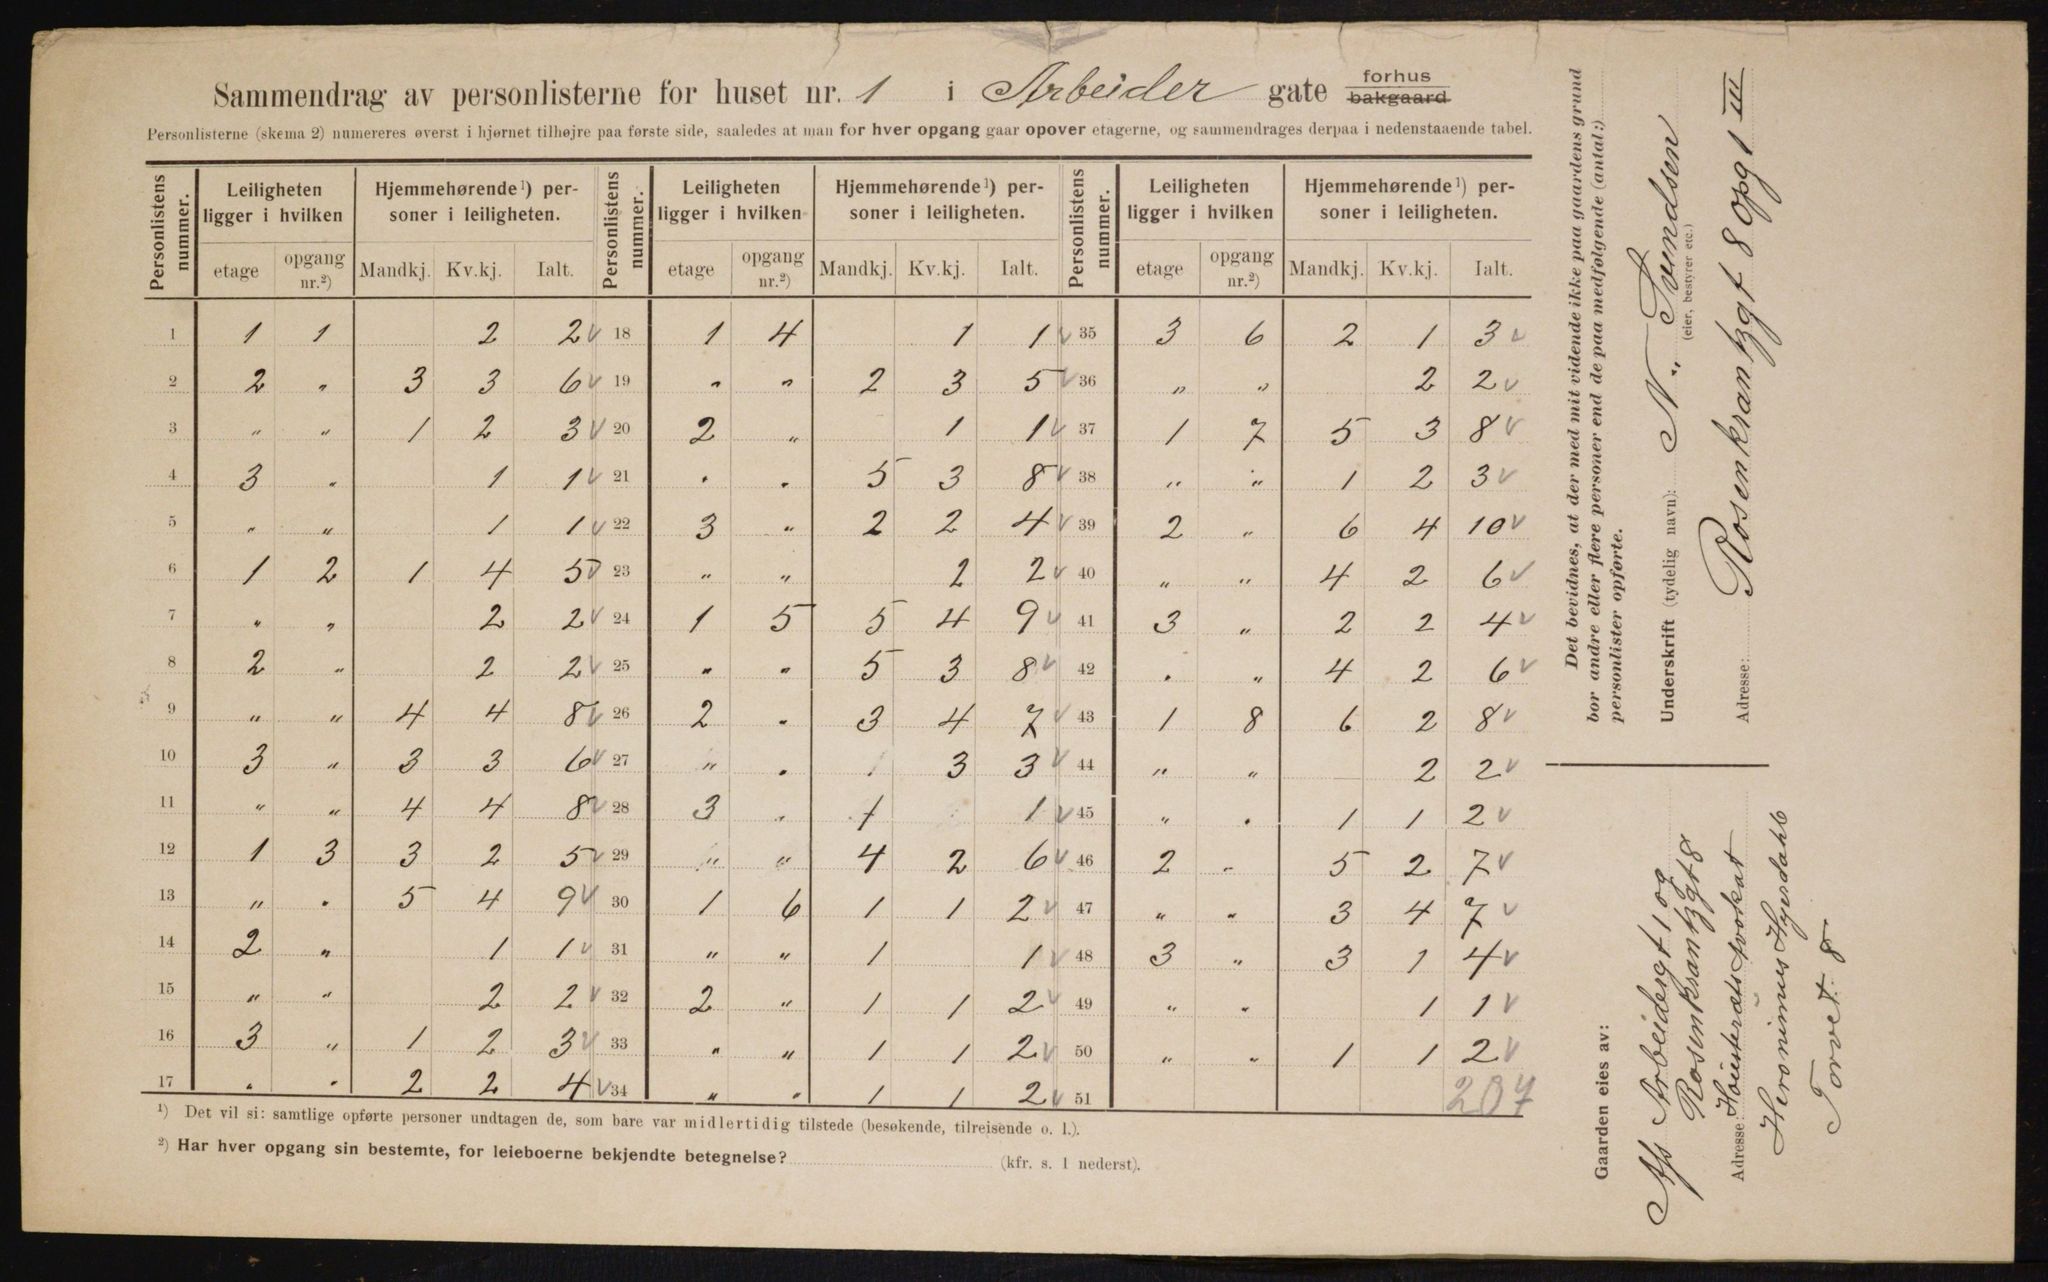 Sammendrag av personlisterne for huset nr. 1 i Arbeider gate forhus bakgaard
Personlisterne (skema 2) numereres øverst i hjørnet tilhøjre paa første side, saaledes at man for hver opgang gaar opover etagerne, og sammendrages derpaa i nedenstaaende tabel.
Personlistens nummer. Leiligheten ligger i hvilken Hjemmehørende¹) personer i leiligheten. Personlistens nummer. Leiligheten ligger i hvilken Hjemmehørende¹) personer i leiligheten. Personlistens nummer. Leiligheten ligger i hvilken Hjemmehørende¹) personer i leiligheten.
etage opgang nr.²) Mandkj. Kv.kj. Ialt. etage opgang nr.²) Mandkj. Kv.kj. Ialt. etage opgang nr.²) Mandkj. Kv.kj. Ialt.
1 1 1 2 2 √ 18 1 4 1 1 √ 35 3 6 2 1 3 √
2 2 " 3 3 6 √ 19 " " 2 3 5 √ 36 " " 2 2 √
3 " " 1 2 3 √ 20 2 " 1 1 √ 37 1 7 5 3 8 √
4 3 " 1 1 √ 21 " " 5 3 8 √ 38 " " 1 2 3 √
5 " " 1 1 √ 22 3 " 2 2 4 √ 39 2 " 6 4 10 √
6 1 2 1 4 5 √ 23 " " 2 2 √ 40 " " 4 2 6 √
7 " " 2 2 √ 24 1 5 5 4 9 √ 41 3 " 2 2 4 √
8 2 " 2 2 √ 25 " " 5 3 8 √ 42 " " 4 2 6 √
9 " " 4 4 8 √ 26 2 " 3 4 7 √ 43 1 8 6 2 8 √
10 3 " 3 3 6 √ 27 " " 3 3 √ 44 " " 2 2 √
11 " " 4 4 8 √ 28 3 " 1 1 √ 45 " " 1 1 2 √
12 1 3 3 2 5 √ 29 " " 4 2 6 √ 46 2 " 5 2 7 √
13 " " 5 4 9 √ 30 1 6 1 1 2 √ 47 " " 3 4 7 √
14 2 " 1 1 √ 31 " " 1 1 √ 48 3 " 3 1 4 √
15 " " 2 2 √ 32 2 " 1 1 2 √ 49 " " 1 1 √
16 3 " 1 2 3 √ 33 " " 1 1 2 √ 50 " " 1 1 2 √
17 " " 2 2 4 √ 34 " " 1 1 2 √ 51 207
¹) Det vil si: samtlige opførte personer undtagen de, som bare var midlertidig tilstede (besøkende, tilreisende o. l.).
²) Har hver opgang sin bestemte, for leieboerne bekjendte betegnelse? (kfr. s. 1 nederst).
Det bevidnes, at der med mit vidende ikke paa gaardens grund
bor andre eller flere personer end de paa medfølgende (antal:)
personlister opførte.
Underskrift (tydelig navn): N. Svendsen
(eier, bestyrer etc.)
Adresse: Rosenkrantzgt 8 opg 1 III
Gaarden eies av:
A/s Arbeidergt 1 og
Rosenkrantzgt 8
Adresse: Høiesterets Advokat
Heronimus Heyerdahl
Torvet 8